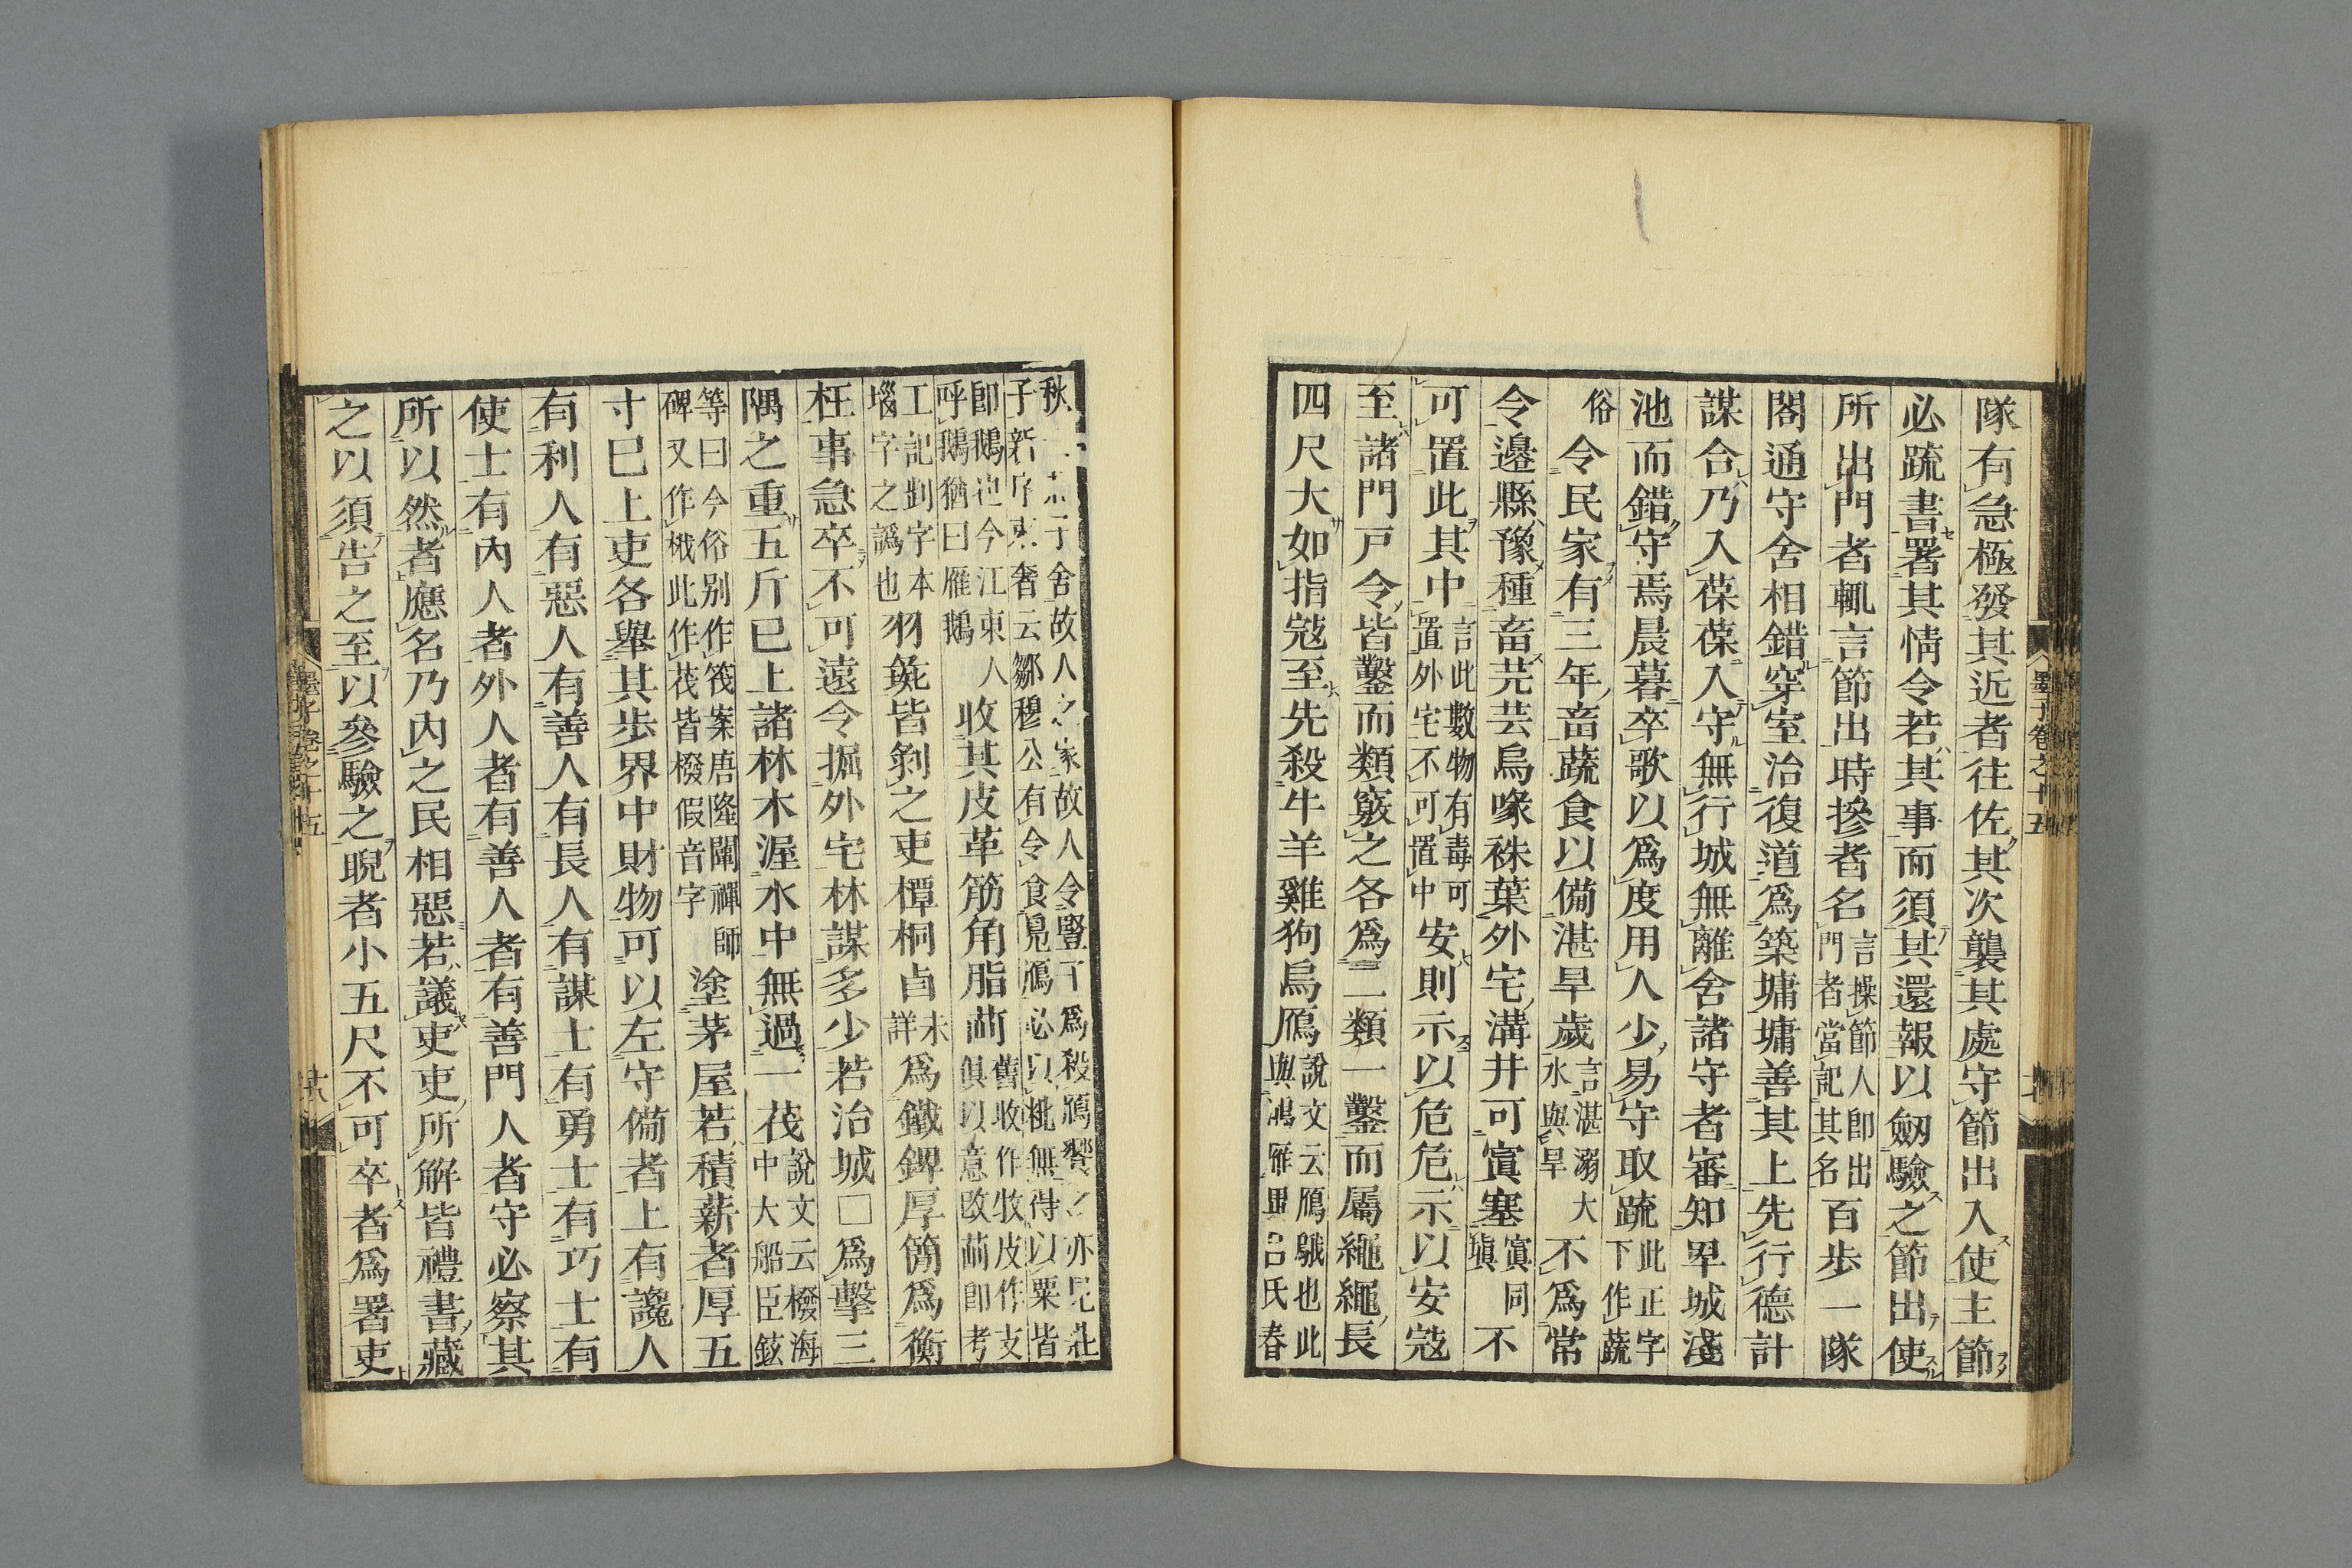 隊有急極發其近者往佐其次襲其處守節出入使主節
必疏書署其情令若其事而須其還報以劒驗之節出使
所出門者輒言節出時摻者名言操節人卽出門者當記其名百步一隊
閤通守舍相錯穿室治復道爲築墉墉善其上先行德計
謀合乃入葆葆入守無行城無離舍諸守者審知卑城淺
池而錯守焉晨暮卒歌以爲度用人少易守取疏此正字下作蔬
俗令民家有三年畜蔬食以備湛旱歲言湛溺大水與旱不爲常
令邊縣豫種畜芫芸烏喙袾葉外宅溝井可窴塞窴同塡不
可置此其中言此數物有毒可置外宅不可置中安則示以危危示以安寇
至諸門戸令皆鑿而類竅之各爲二類一鑿而屬繩繩長
四尺大如指寇至先殺牛羊雞狗烏鴈說文云鴈䳘也此與鴻雁異呂氏春
秋 子舍故人之家故人令豎子爲殺鴈饗之亦見莊子新序刺奢云鄒穆公有令食鳧鴈必以粃無得以粟皆
卽鵝也今江東人呼鵝猶曰雁鵝收其皮革筋角脂䓊舊收作牧皮作支俱以意改䓊卽考
工記𠜶字本㙇字之譌也羽彘皆剝之吏橝桐卣未詳爲鐵錍厚簡爲衡
枉事急卒不可遠令掘外宅林謀多少若治城□爲擊三
隅之重五斤已上諸林木渥水中無過一茷說文云橃海中大船臣鉉
等曰今俗別作筏案唐隆闡禪師碑又作栰此作茷皆橃假音字塗茅屋若積薪者厚五
寸已上吏各舉其步界中財物可以左守備者上有讒人
有利人有惡人有善人有長人有謀士有勇士有巧士有
使士有內人者外人者有善人者有善門人者守必察其
所以然者應名乃內之民相惡若議吏吏所解皆禮書藏
之以須告之至以參驗之睨者小五尺不可卒者爲署吏
墨子卷之十五
墨子卷之十五